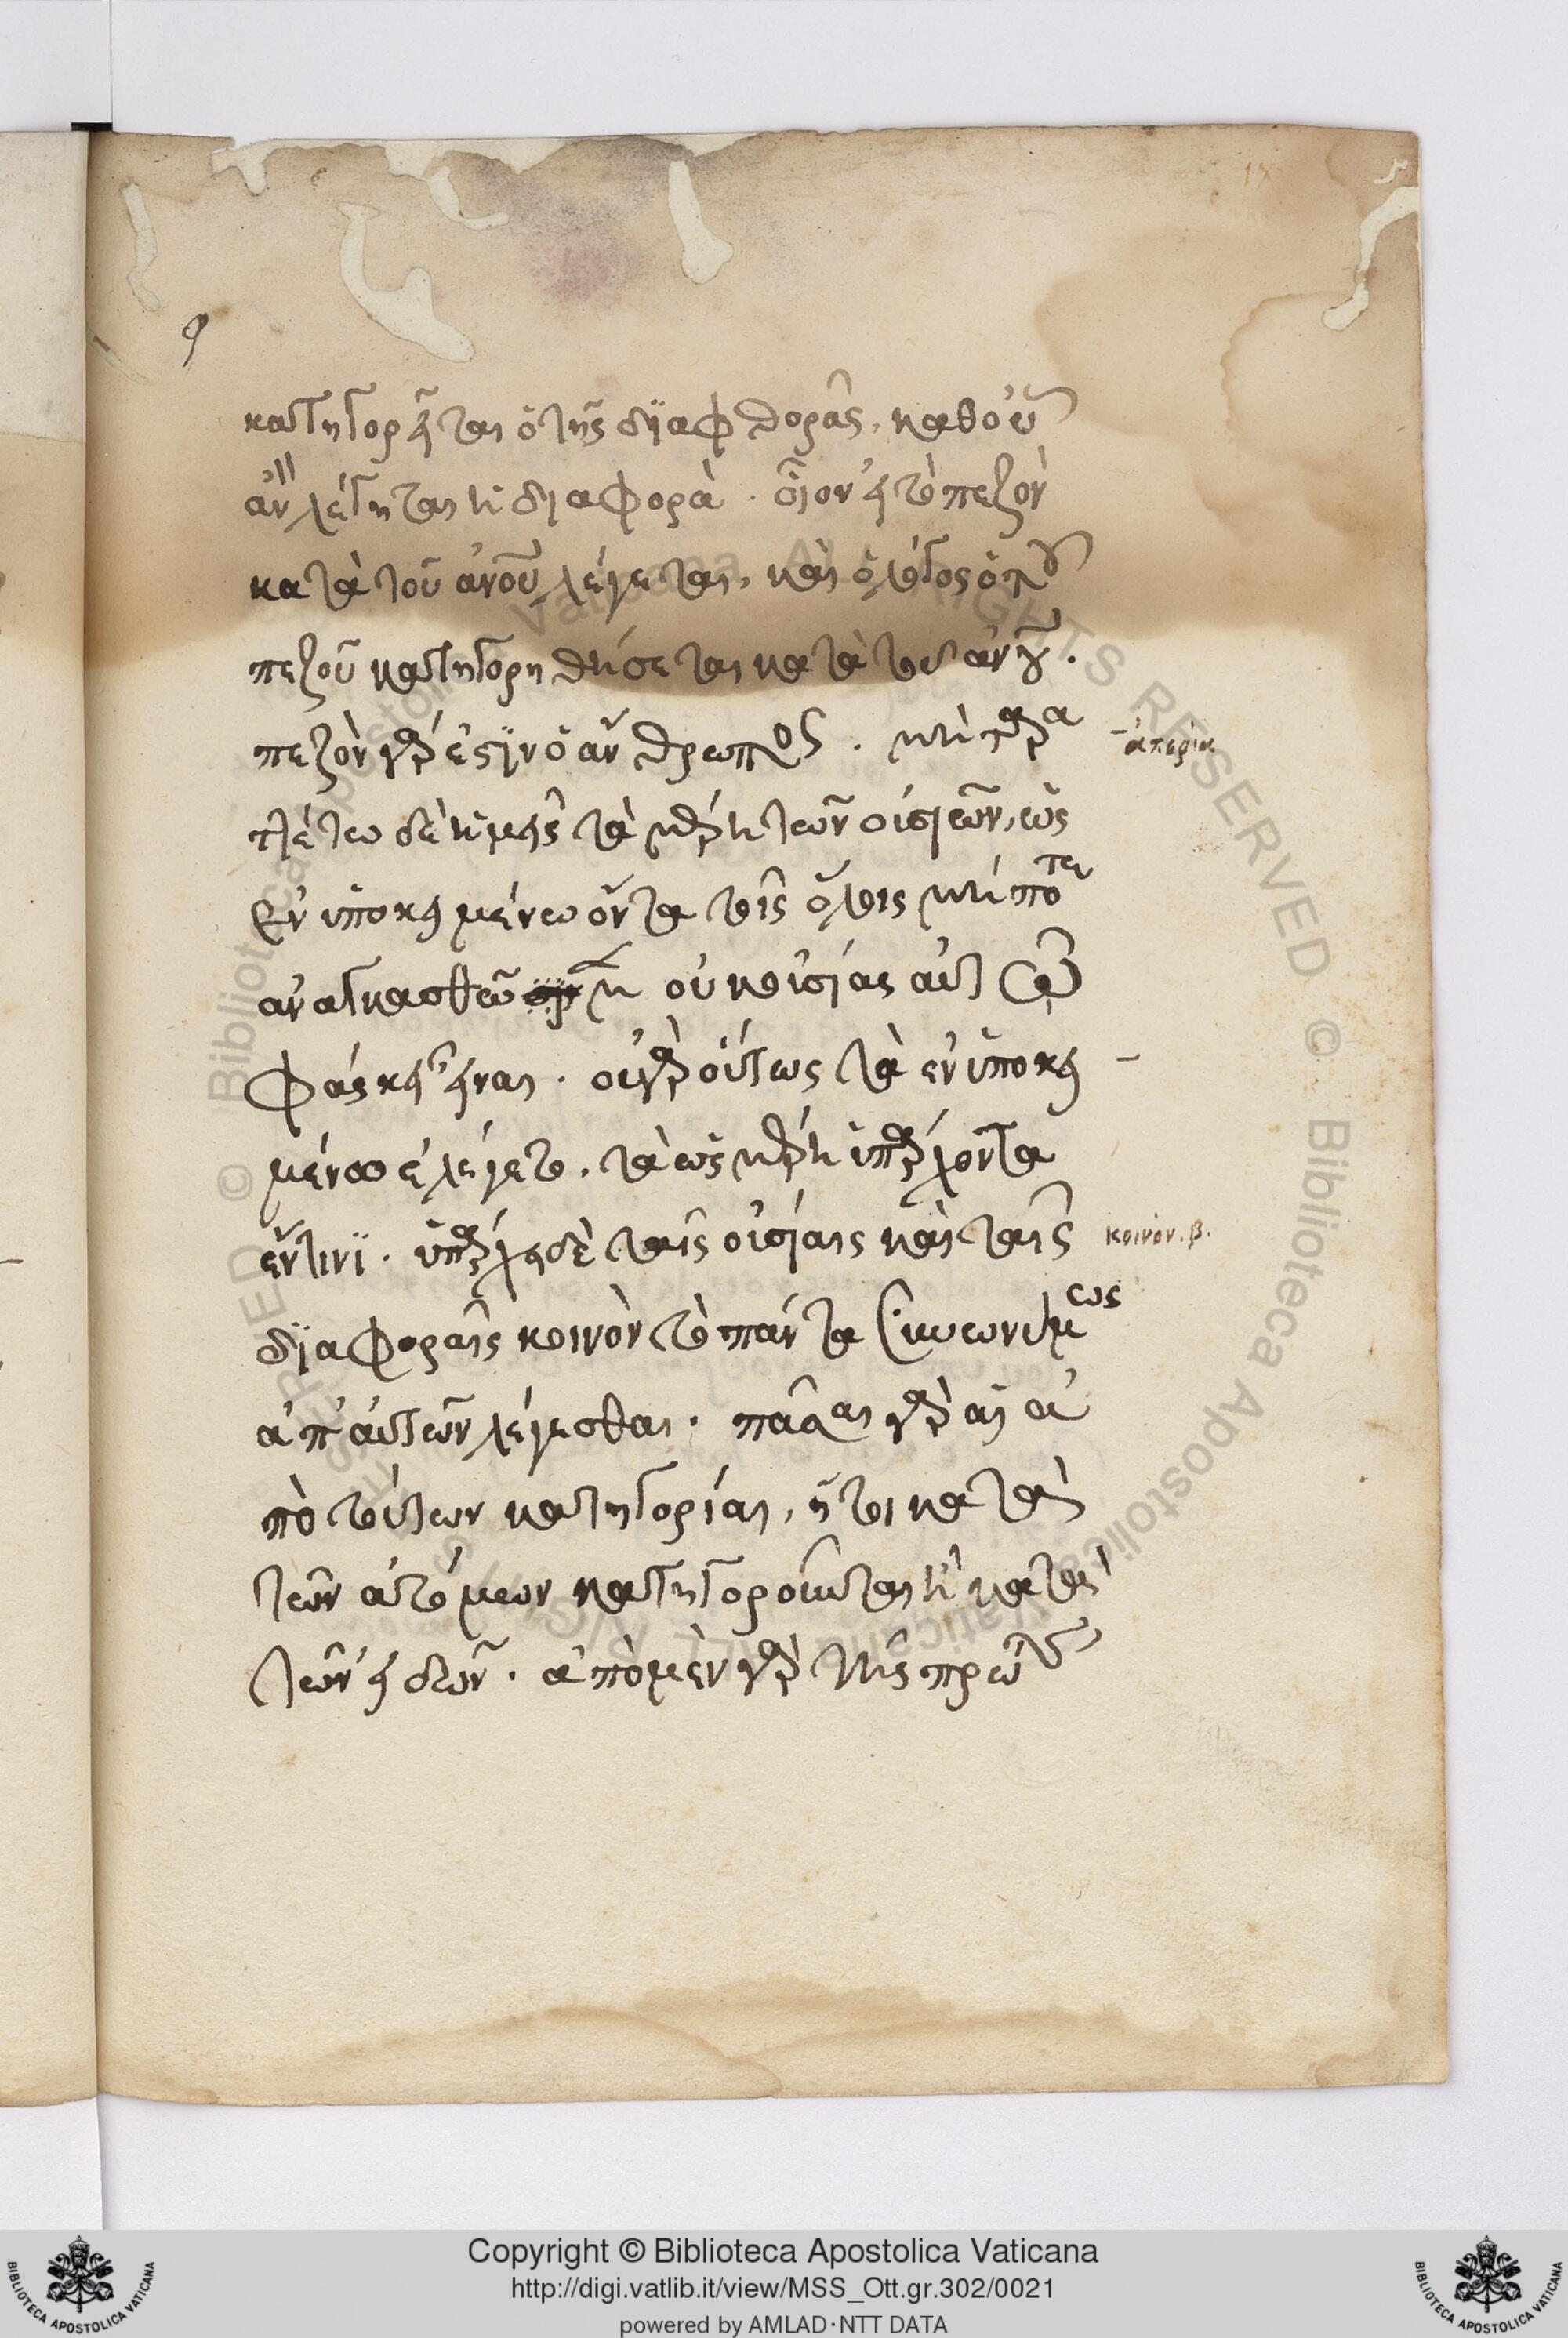 κατηγορεῖται ὁ τῆς διαφθορᾶς, καθ' οὗ
ἂν λέγηται ἡ διαφορά. οἷον εἰ τὸ πεζὸν
κατὰ τοῦ ἀνου λέγεται, καὶ ὁ λόγος ὁ τοῦ
πεζοῦ κατηγορηθήσεται κατὰ τοῦ ἀνου.
πεζὸν γάρ ἐστιν ὁ ἄνθρωπος. μὴ ταρα
ἀπορία
τλέτω δὲ ἡμᾶς τὰ μέρη τῶν οὐσιῶν, ὡς
ἐν ὑποκειμένω ὄντα τοῖς ὅλοις μήποτε
ἀναγκασθῶμεν οὐκ οὐσίας αὐτὰ
φάσκειν εἶναι. οὐ γὰρ οὕτως τὰ ἐν ὑποκει
μένω ἐλέγετο, τὰ ὡς μέρη ὑπάρχοντα
ἔν τινι. ὑπάρχει δὲ ταῖς οὐσίαις καὶ ταῖς
κοινὸν. β.
διαφοραῖς κοινὸν τὸ πάντα συνωνύμως
ἀπ' αὐτῶν λέγεσθαι. πᾶσαι γὰρ αἱ ἀ
πὸ τούτων κατηγορίαι, ἤτοι κατὰ
τῶν ἀτόμων κατηγοροῦνται ἢ κατὰ
τῶν εἰδῶν. ἀπὸ μὲν γὰρ τῆς πρώτης
Copyright © Biblioteca Apostolica Vaticana
http://digi.vatlib.it/view/MSS_Ott.gr.302/0021
powered by AMLAD·NTT DATA